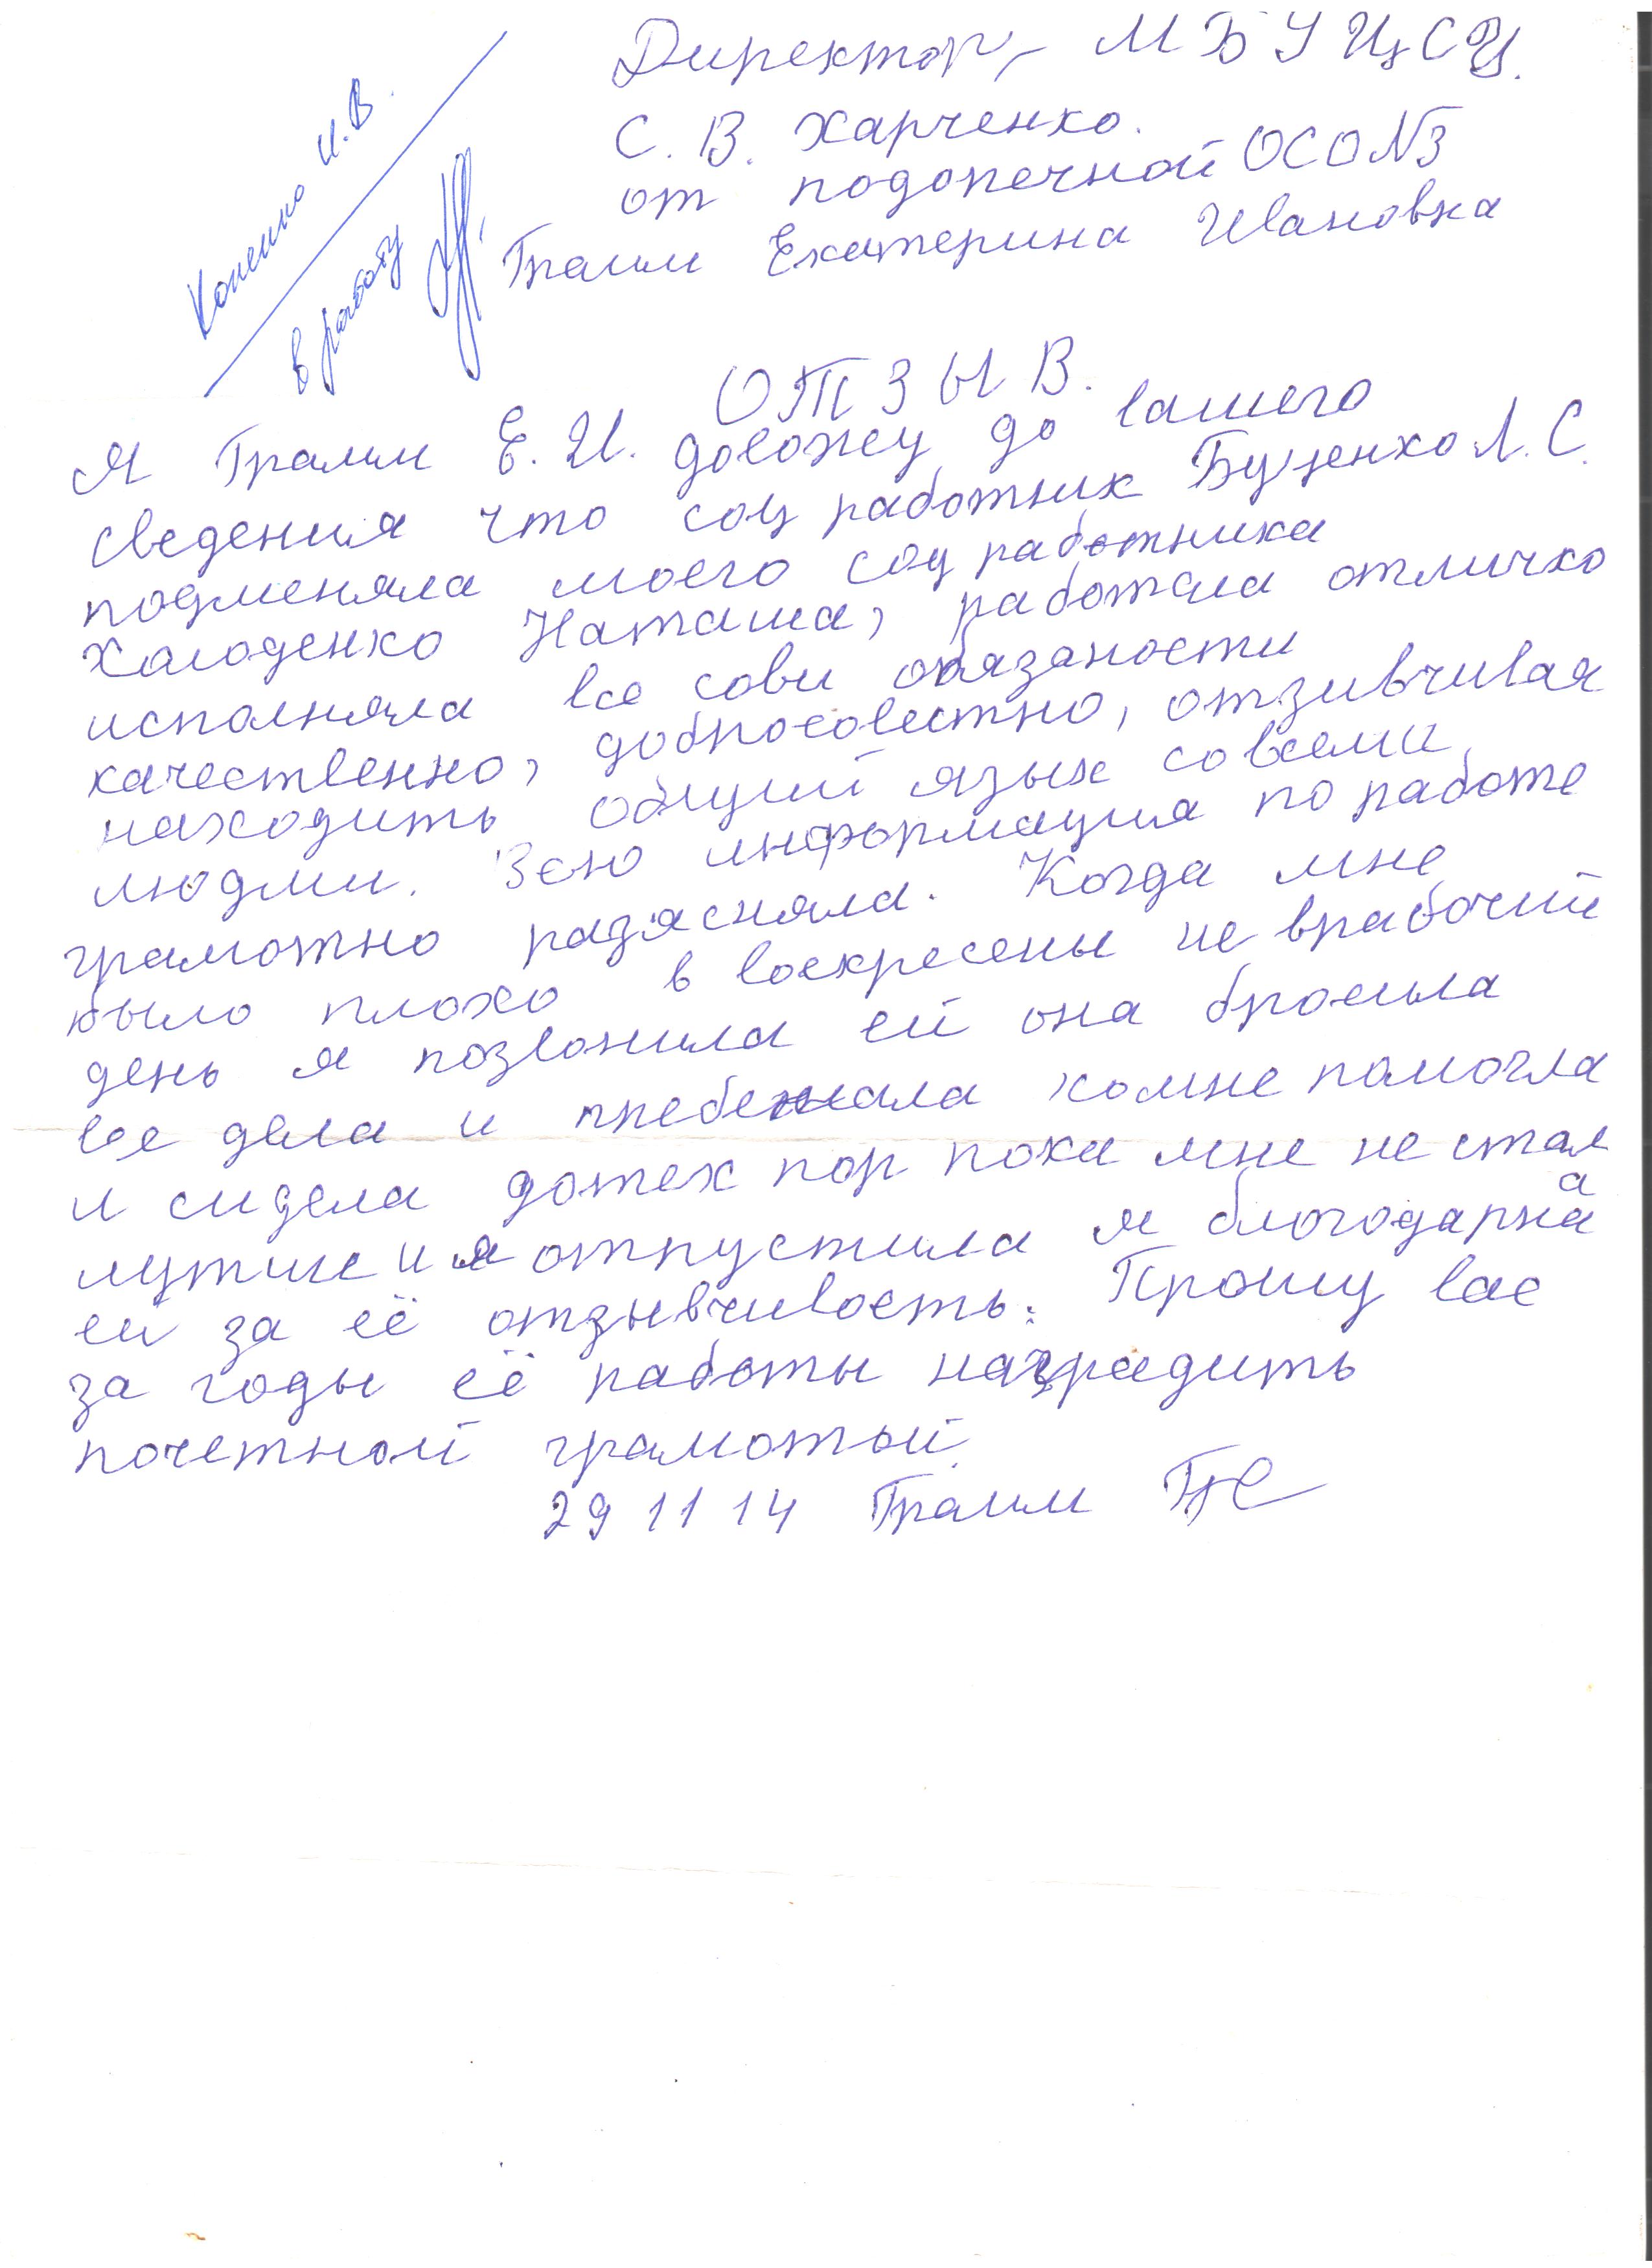 Директор, МБУ ЦСЦ.
С. В. Харченко.
от подопечной ОСО N3
Грамм Екатерина Ивановна
И.В.
в работу
ОТЗЫВ.
Я Грамм Е. И. довожу до вашего
сведения что соц работник Буценко Л. С.
подменяла моего соц работника
Холоденко Наташа, работала отлично
исполняла все сови обязаности
качественно, добросовестно, отзивчивая
находить общий язык со всеми
людми. Всю информация по работе
грамотно разясняла. Когда мне
было плохо в воскресены не врабочий
день я позвонила ей она бросила
все дела и пребежала комне помогла
и сидела дотех пор пока мне не стала
лутше и я отпустила я благодарна
ей за её отзывчивость. Прошу вас
за годы её работы наградить
почетной грамотый.
29 11 14 Грамм